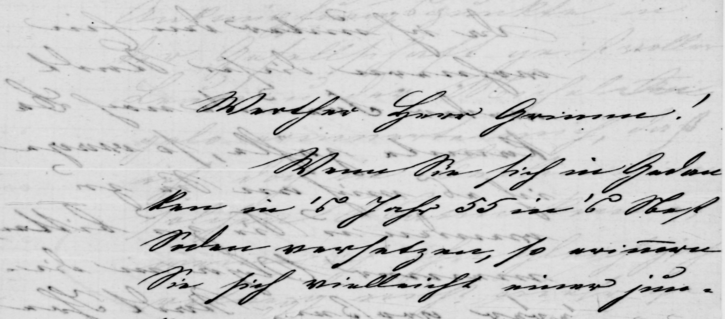 Werther Herr Grimm!
Wenn Sie sich in Gedan
ken in's Jahr 55 in's Bad
Soden versetzen, so erinnern
Sie sich vielleicht einer jun-